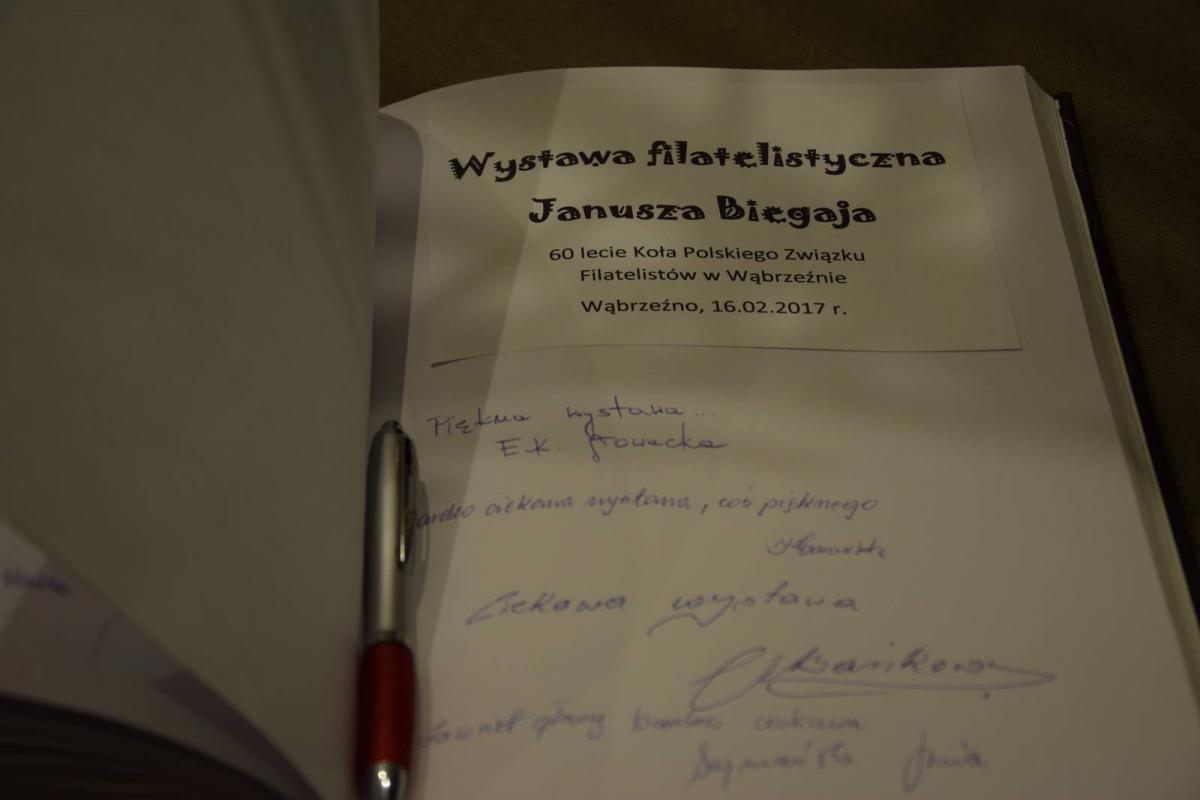 Wystawa filatelistyczna
Janusza Biegaja
60 lecie Koła Polskiego Związku
Filatelistów w Wąbrzeźnie
Wąbrzeźno, 16.02.2017 r.
Piękna wystawa...
E.K. Głowacka
ciekawa wystawa, coś pięknego
Ciekawa wystawa
bardzo ciekawa